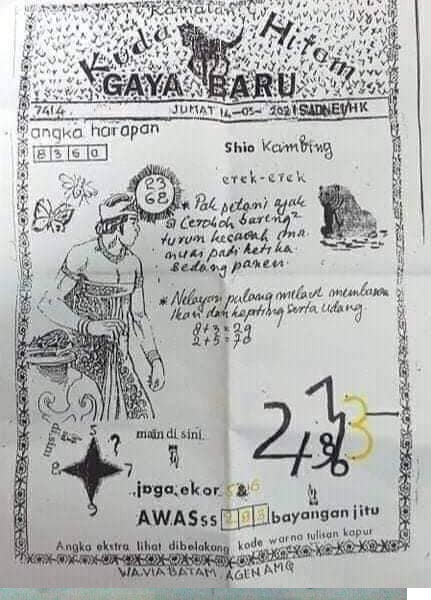 Ramalan
Kuda Hitam
GAYA BARU
7414. JUMAT 14-05-2021 SADNEY/HK
angka harapan
8360
Shio Kambing
erek-erek
23
68
* Pak petani ajak
turun kesawah
padi ketika
sedang panen.
* Nelayan pulang melaut membawa
Ikan dan kepiting serta udang.
8+3=29
2+5=70
main di sini.
disini
5
?
7
9
3
joga, ekor 5&6
AWASss bayangan jitu
Angka ekstra lihat dibelakang kode warna tulisan kapur
WA.VIA BATAM. AGEN AMQ